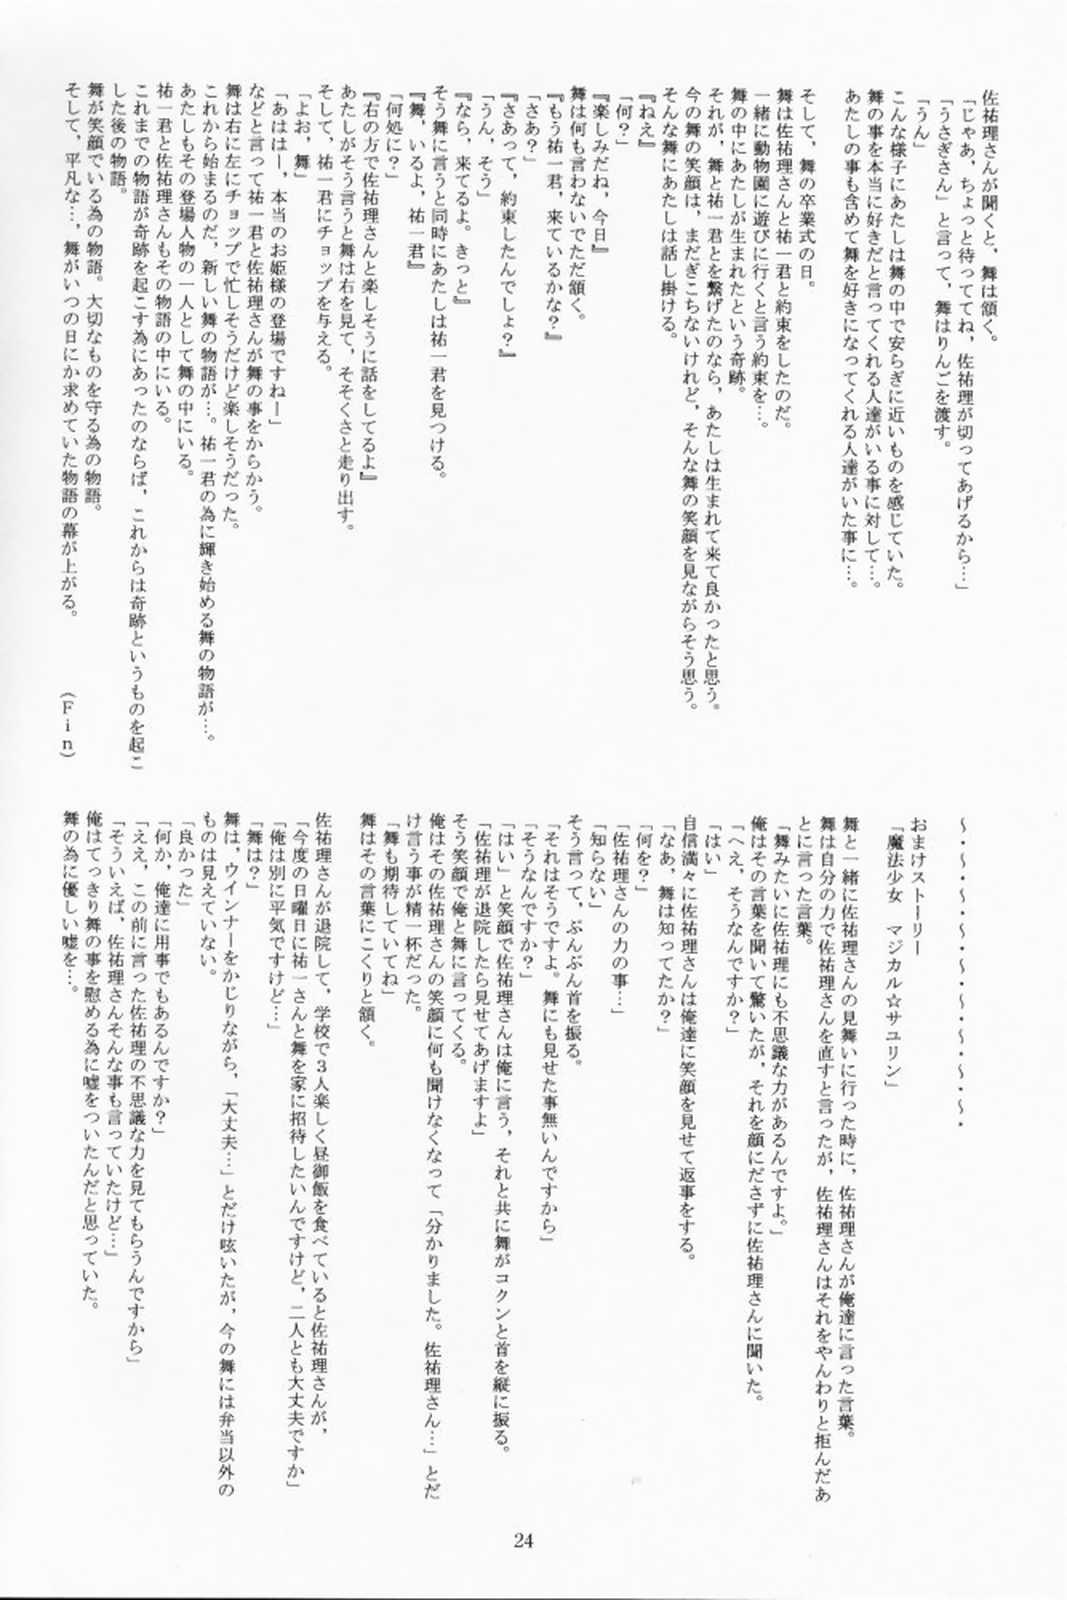 佐祐理さんが聞くと、舞は頷く。
「じゃあ、ちょっと待っててね、佐祐理が切ってあげるから…」
「うさぎさん」と言って、舞はりんごを渡す。
「うん」
こんな様子にあたしは舞の中で安らぎに近いものを感じていた。
舞の事を本当に好きだと言ってくれる人達がいる事に対して…。
あたしの事も含めて舞を好きになってくれる人達がいた事に…。
そして、舞の卒業式の日。
舞は佐祐理さんと祐一君と約束をしたのだ。
一緒に動物園に遊びに行くと言う約束を…。
舞の中にあたしが生まれたという奇跡。
それが、舞と祐一君とを繋げたのなら、あたしは生まれて来て良かったと思う。
今の舞の笑顔は、まだぎこちないけれど、そんな舞の笑顔を見ながらそう思う。
そんな舞にあたしは話し掛ける。
『ねえ』
「何？」
『楽しみだね、今日』
舞は何も言わないでただ頷く。
『もう祐一君、来ているかな？』
「さあ？」
『さあって、約束したんでしょ？』
「うん、そう」
『なら、来てるよ。きっと』
そう舞に言うと同時にあたしは祐一君を見つける。
『舞、いるよ、祐一君』
「何処に？」
『右の方で佐祐理さんと楽しそうに話をしてるよ』
あたしがそう言うと舞は右を見て、そそくさと走り出す。
そして、祐一君にチョップを与える。
「よお、舞」
「あははー、本当のお姫様の登場ですねー」
などと言って祐一君と佐祐理さんが舞の事をからかう。
舞は右に左にチョップで忙しそうだけど楽しそうだった。
これから始まるのだ、新しい舞の物語が…。祐一君の為に輝き始める舞の物語が…。
あたしもその登場人物の一人として舞の中にいる。
祐一君と佐祐理さんもその物語の中にいる。
これまでの物語が奇跡を起こす為にあったのならば、これからは奇跡というものを起こ
した後の物語。
舞が笑顔でいる為の物語。大切なものを守る為の物語。
そして、平凡な…、舞がいつの日にか求めていた物語の幕が上がる。
（Ｆｉｎ）
～・～・～・～・～・～・～・～・～・～・
おまけストーリー
「魔法少女　マジカル☆サユリン」
舞と一緒に佐祐理さんの見舞いに行った時に、佐祐理さんが俺達に言った言葉。
舞は自分の力で佐祐理さんを直すと言ったが、佐祐理さんはそれをやんわりと拒んだあ
とに言った言葉。
「舞みたいに佐祐理にも不思議な力があるんですよ。」
俺はその言葉を聞いて驚いたが、それを顔にださずに佐祐理さんに聞いた。
「へえ、そうなんですか？」
「はい」
自信満々に佐祐理さんは俺達に笑顔を見せて返事をする。
「なあ、舞は知ってたか？」
「何を？」
「佐祐理さんの力の事…」
「知らない」
そう言って、ぶんぶん首を振る。
「それはそうですよ。舞にも見せた事無いんですから」
「そうなんですか？」
「はい」と笑顔で佐祐理さんは俺に言う、それと共に舞がコクンと首を縦に振る。
「佐祐理が退院したら見せてあげますよ」
そう笑顔で俺と舞に言ってくる。
俺はその佐祐理さんの笑顔に何も聞けなくなって「分かりました。佐祐理さん…」とだ
け言う事が精一杯だった。
「舞も期待していてね」
舞はその言葉にこくりと頷く。
佐祐理さんが退院して、学校で３人楽しく昼御飯を食べていると佐祐理さんが、
「今度の日曜日に祐一さんと舞を家に招待したいんですけど、二人とも大丈夫ですか」
「俺は別に平気ですけど…」
「舞は？」
舞は、ウインナーをかじりながら、「大丈夫…」とだけ呟いたが、今の舞には弁当以外の
ものは見えていない。
「良かった」
「何か、俺達に用事でもあるんですか？」
「ええ、この前に言った佐祐理の不思議な力を見てもらうんですから」
「そういえば、佐祐理さんそんな事も言っていたけど…」
俺はてっきり舞の事を慰める為に嘘をついたんだと思っていた。
舞の為に優しい嘘を…。
24